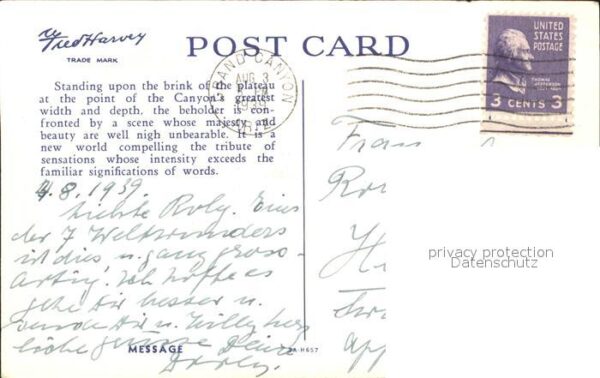 Fred Harvey
TRADE MARK
POST CARD
GRAND CANYON
AUG 3
1939
ARIZ.
UNITED
STATES
POSTAGE
THOMAS
JEFFERSON
3 CENTS 3
Standing upon the brink of the plateau
at the point of the Canyon's greatest
width and depth, the beholder is con-
fronted by a scene whose majesty and
beauty are well nigh unbearable. It is a
new world compelling the tribute of
sensations whose intensity exceeds the
familiar significations of words.
4.8.1939.
Liebste Roly. Eines
der 7 Weltwunders
ist dies u. ganz gross-
artig. Ich hoffe es
gehe Dir besser u.
sende Dir u. Willy herz
liche Grüsse Deine
MESSAGE
A-H657
Frau
privacy protection
Datenschutz